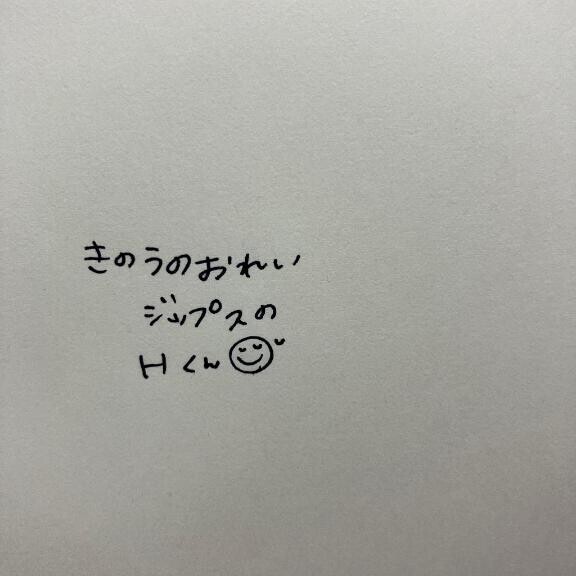 きのうのおれい
ジップスの
Hくん